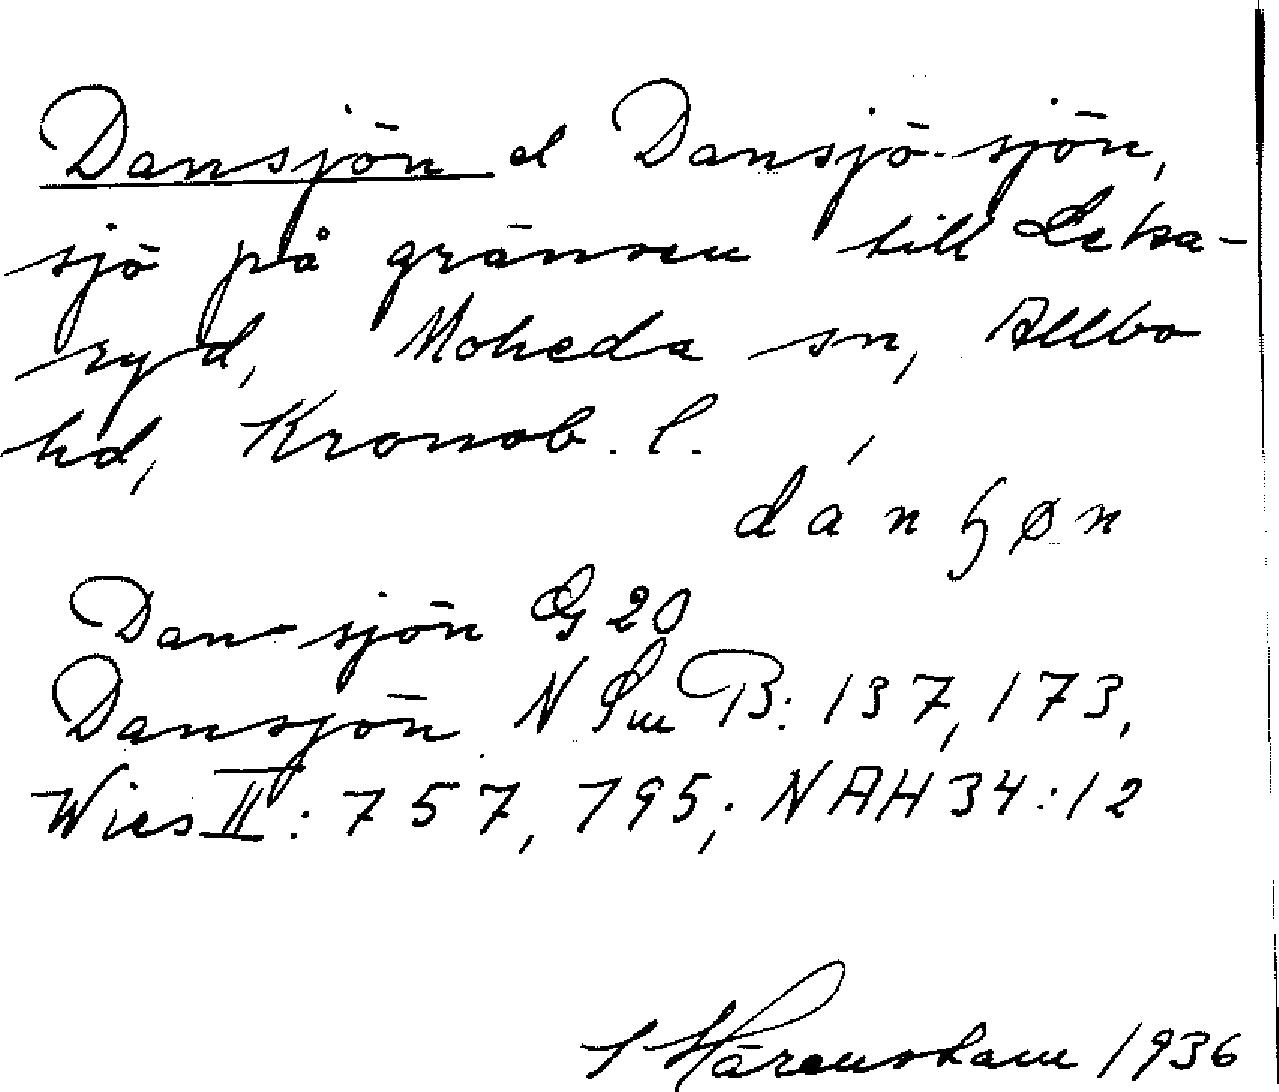 Dansjön el Dansjö-sjön,
sjö på gränsen till Leka-
ryd, Moheda sn, Allbo
hd, Kronob. l.
dánɧøn
Dansjön G 20
Dansjön N Sm B: 137, 173,
Wies II: 757, 795; NAH 34:12
S Härenstam 1936